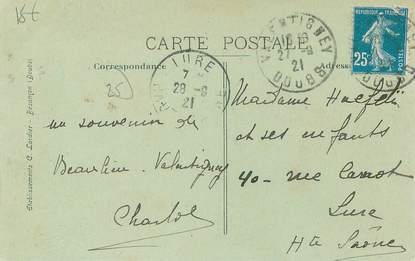 15t
CARTE POSTALE
Correspondance
Adresse
25
LURE
7
28 -9
21
VALENTIGNEY
DOUBS
21
REPUBLIQUE FRANÇAISE
25c
un souvenir de
Beaulieu. Valentigney
Charlot
Madame
et ses enfants
40 - rue Carnot
Lure
Hte Saône
Etablissements C. Lardier - Besançon (Doubs)